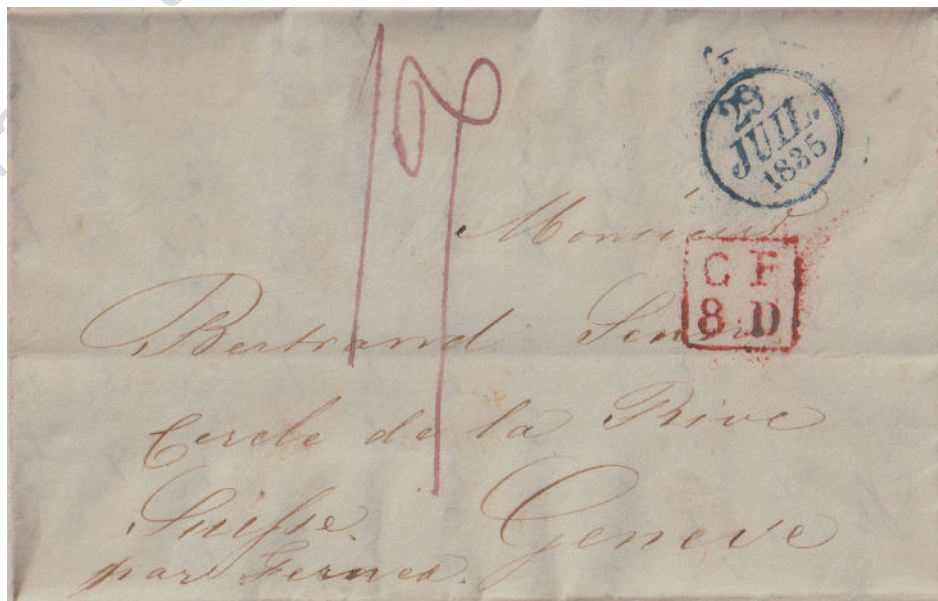 29
JUIL.
1835
Monsieur
C F
8 D
Bertrand
Cercle de la Rive
Suisse. Geneve
par Fernex.